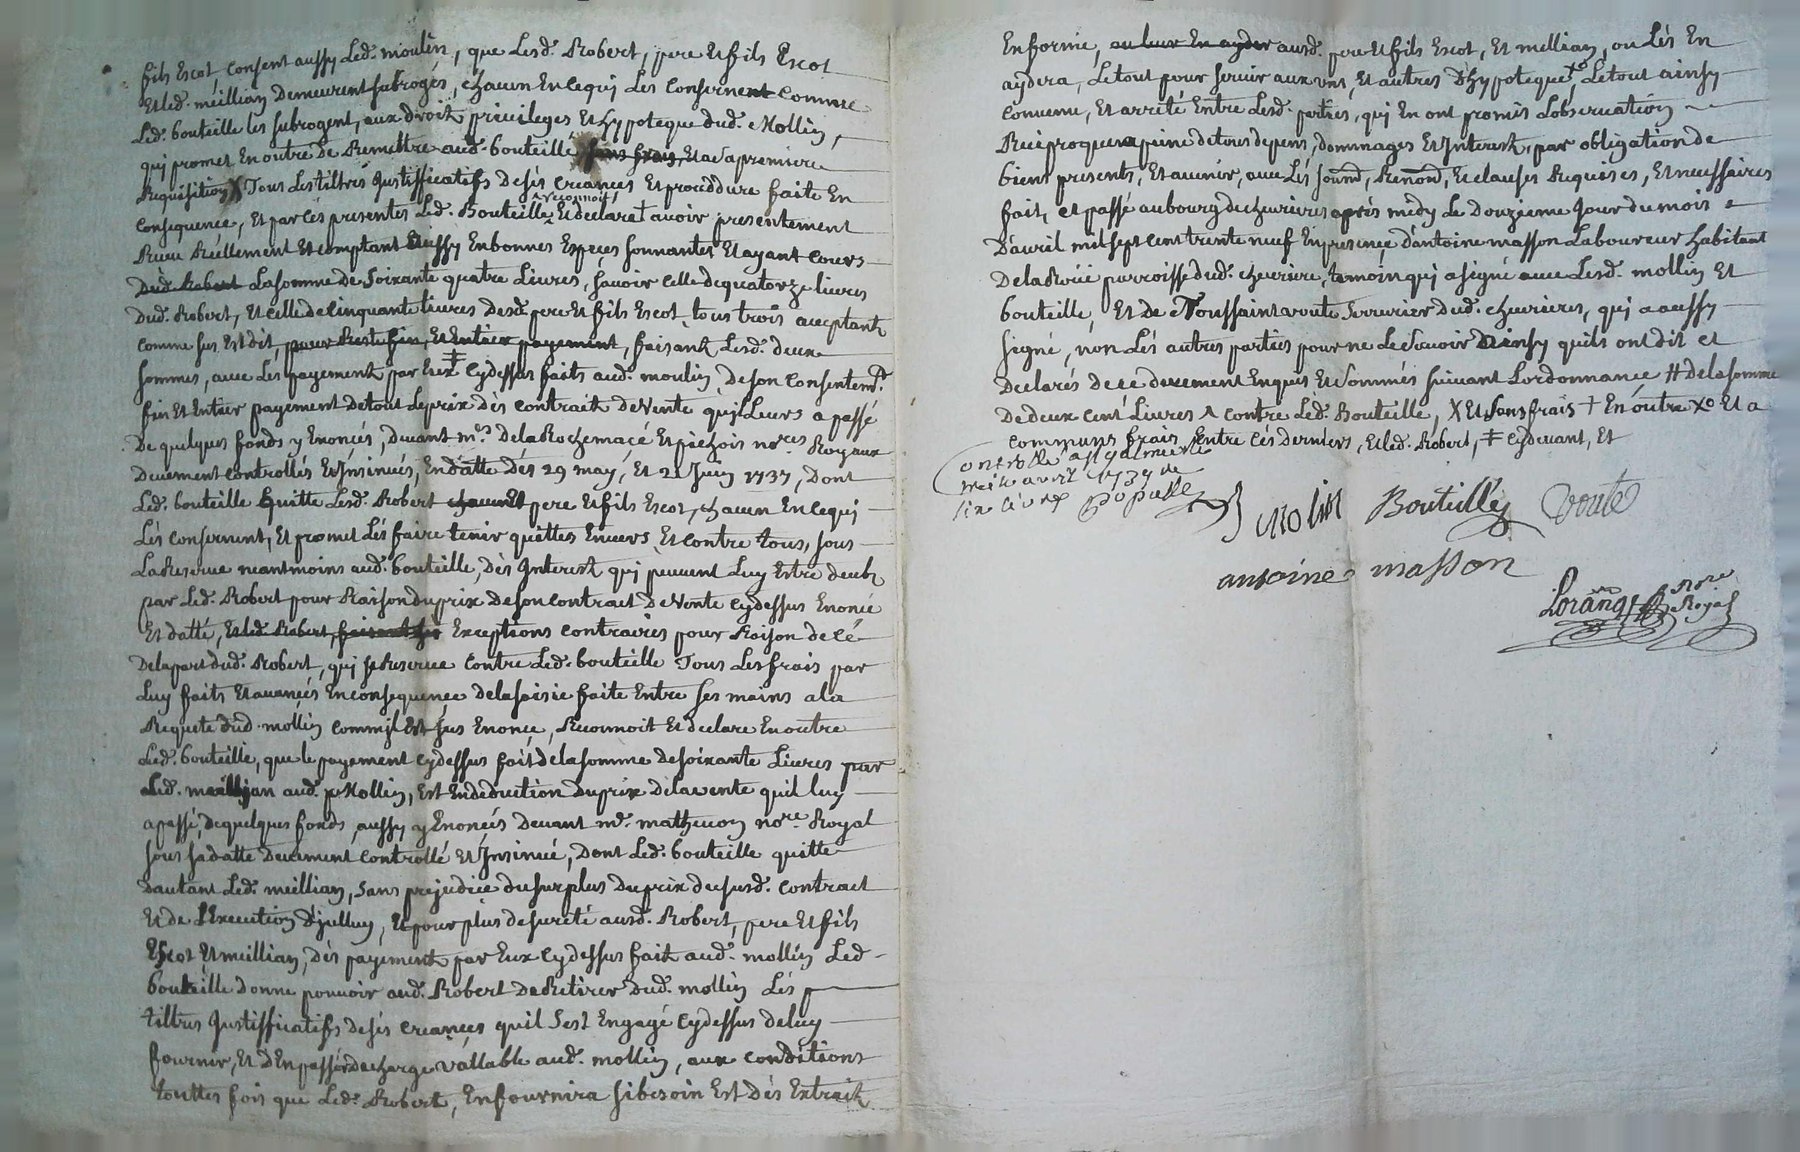 fils Escot, consent aussy Led. moulin, que Lesd. Robert, pere Et fils Escot
Et led. meillian Demeurent subrogés, chacun En ce qui Les Consernent comme
Led. bouteille les subrogent, aux droit privileges Et hypoteque dud. Mollin,
qui promet En outre De Remettre aud. bouteille sans frais, Et a sa premiere
Requisition X Tous Les tiltres Justifficatifs De sés creances Et proceddure faite En
Consequence, Et par cés presentes Led. Bouteille reconnoit Et declare + avoir presentement
Receu Réellement Et comptant Eussy En bonnes Especes sonnantes Et ayant cours
Dud. Robert La somme De Soixante quatre Livres, scavoir celle de quatorze livres
Dud. Robert, Et celle de cinquante livres Desd. pere Et fils Escot, tous trois acceptant
comme sus Est dit, pour Reste fin, Et Entier payement, faisant Lesd. deux
sommes, avec Les payement par Eux ‡ cydessus faits aud. moulin De son Consentemt.
fin Et Entier payement De tout Le prix dès contrait de Vente qu'il Leurs a passé
De quelques fonds y Enoncés, Devant mes. De la Rochemacé Et pichois nores. Royaux
Deuement Controllés Et Insinués, En datte dés 29 may, Et 21 Juin 1737, Dont
Led. bouteille Quitte Lesd. Robert chacun Et pere Et fils Escot, chacun En ce qui
Lés consernent, Et promet Lés faire tenir quittes Envers Et contre tous, sous
La Reserve neantmoins aud. bouteille, dès Interest qui peuvent Luy Estre deubs
par Led. Robert pour Raison du prix De son contract De Vente cydessus Enoncé
Et datté, Et led. Robert, faisant Exceptions contraires pour Raison de cé
De la part dud. Robert, qui se Reserve Contre Led. bouteille Tous Les frais par
Luy faits Et avancés En consequence de la saisie faite Entre ses mains a la
Requete dud. mollin comm'il Est sus Enoncé, Reconnoit Et declare En outre
Led. bouteille, que le payement cydessus fait de la somme de soixante Livres par
Led. meillian aud. Mollin, Est En deduction du prix de la vente quil luy
a passé, de quelques fonds, aussy y Enoncés Devant me. mathevon nore. Royal
sous sa datte Deuement Controllé Et Insinué, Dont Led. bouteille quitte
Dautant Led. meillian, sans prejudice du surplus Du prix du susd. contract
Et de L'Execution d'jcelluy, Et pour plus de sureté ausd. Robert, pere Et fils
Escot Et meillian, dès payement par Eux cydessus fait aud. mollin Led.
bouteille Donne pouvoir aud. Robert De Retirer Dud. mollin Lés
tiltres Justifficatifs de sés creances quil s'est Engagé cydessus de luy
fournir, Et D'En passer decharge vallable aud. mollin, aux conditions
touttes fois que Led. Robert, En fournira si besoin Est dès Extrait
En forme, ou leur En ayder ausd. pere Et fils Escot, Et mellian, ou Lés En
aydera, Le tout pour servir aux uns, Et autres D'hypoteque, Le tout ainsy
convenu, Et arrété Entre Lesd. parties, qui En ont promis L'observation
Reciproque a peine de tous depens, dommages Et Interest, par obligation de
biens presents, Et avenir, avec Lés soumd. Renond. Et clauses Requises, Et necessaires
fait, et passé au bourg de chevrieres après midy Le Douzieme Jour du mois
D'avril mil sept cent trente neuf En presence d'antoine masson Laboureur habitant
De la Rivié parroisse dud. chevriere, temoin qui a signé avec Lesd. mollin Et
bouteille, Et de Toussaint voute Serrurier Dud. chevrieres, qui a aussy
signé, non Lés autres parties pour ne Le scavoir Ainsy quils ont dit et
Declarés de ce deuement Enquis Et Sommés suivant Lordonnance # De la somme
De deux cent Livres ^ contre Led. Bouteille, X Et Sans frais + En outre X Et a
communs frais Entre cés Derniers, Et led. Robert, ‡ cy devant, Et
Controllé a st galmier le
treize avril 1739
six livres
Molin Bouteille Voute
antoine masson
Lorange Nore
Royal